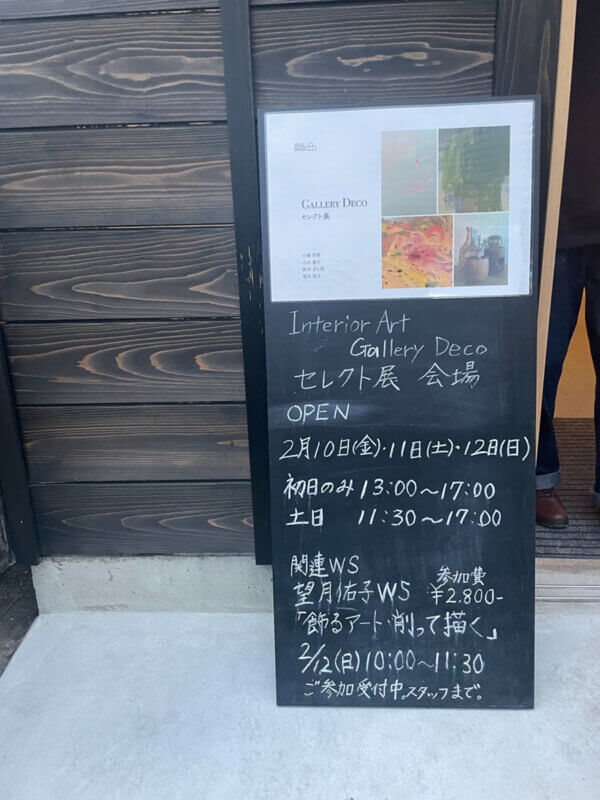 GALLERY DECO
セレクト展
Interior Art
Gallery Deco
セレクト展 会場
OPEN
2月10日(金)・11日(土)・12日(日)
初日のみ 13:00〜17:00
土日 11:30〜17:00
関連WS
参加費
望月佑子WS ¥2.800-
「飾るアート・削って描く」
2/12(日)10:00〜11:30
ご参加受付中。スタッフまで。